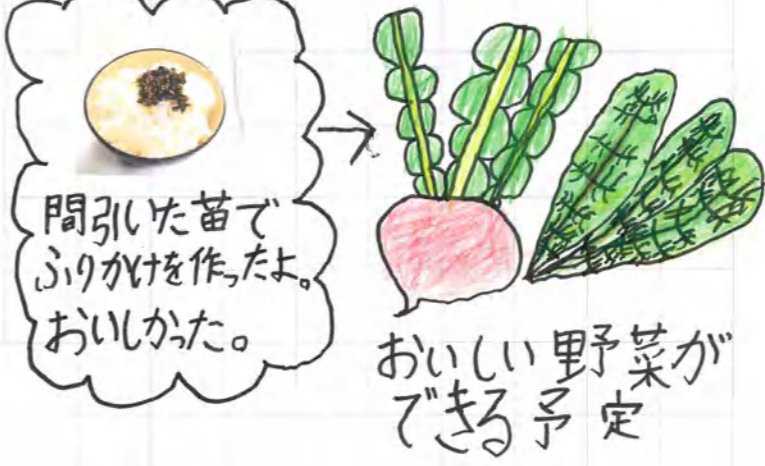 間引いた苗で
ふりかけを作ったよ。
おいしかった。
おいしい野菜が
できる予定